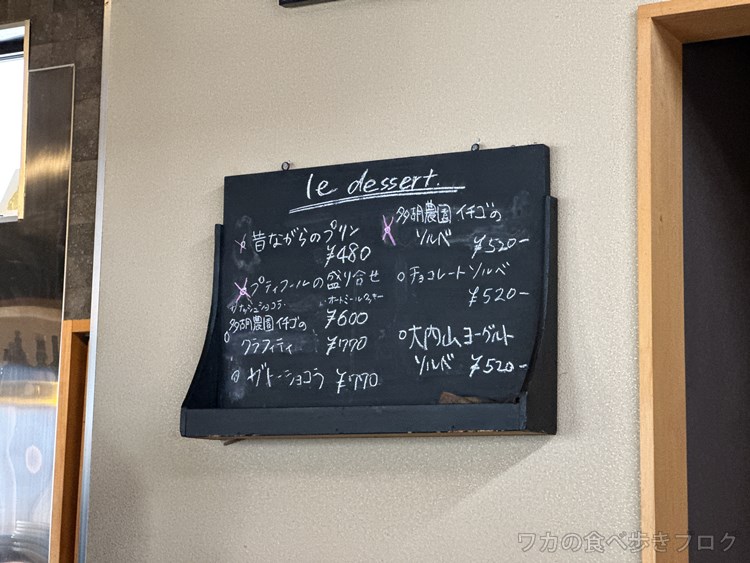 le dessert.
昔ながらのプリン
¥480
プティフールの盛り合せ
ガナッシュショコラ・
オートミールクッキー
¥600
多胡農園イチゴの
グラフィティ ¥770
ガトーショコラ ¥770
多胡農園イチゴの
ソルベ ¥520-
チョコレートソルベ
¥520-
大内山ヨーグルト
ソルベ ¥520-
ワカの食べ歩きブログ